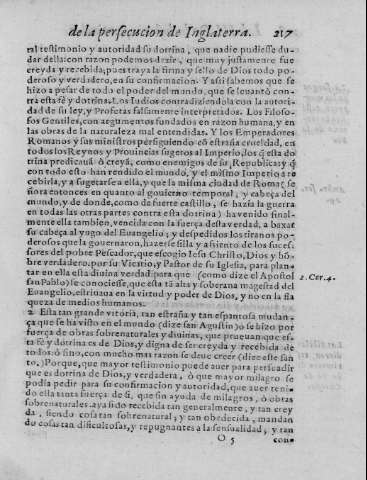 de la persecucion de Inglaterra. 217
ral testimonio y autoridad su dotrina, que nadie pudiesse du-
dar della: con razon podemos dezir, que muy justamente fue
creyda y recebida, pues traya la firma y sello de Dios todo po-
deroso y verdadero, en su confirmacion. Y assi sabemos que se
hizo a pesar de todo el poder del mundo, que se leuantò con-
tra esta fè y dotrina. Los Iudios contradiziendola con la autori-
dad de su ley, y Profetas falsamente interpretados. Los Filoso-
fos Gentiles, con argumentos fundados en razon humana, y en
las obras de la naturaleza mal entendidas. Y los Emperadores
Romanos y sus ministros persiguiendo cõ estraña crueldad, en
todos los Reynos y Prouincias sugetos al Imperio, los q̃ esta do
trina predicauã ò creyã, como enemigos de su Republica: y q̃
con todo esto han rendido el mundo, y el mismo Imperio a re
cebirla, y a sugetarse a ella, y que la misma ciudad de Roma (se
ñora entonces en quanto al gouierno temporal, y cabeça del
mundo, y de donde, como de fuerte castillo, se hazia la guerra
en todas las otras partes contra esta dotrina) ha venido final-
mente ella tambien, vencida con la fuerça desta verdad, a baxar
su cabeça al yugo del Euangelio, y despedidos los tiranos po-
derosos que la gouernaron, hazerse silla y assiento de los suces-
sores del pobre Pescador, que escogio Iesu Christo, Dios y hõ
bre verdadero, por su Vicario y Pastor de su Iglesia, para plan-
tar en ella esta diuina verdad: para que (como dize el Apostol
san Pablo) se conociesse, que esta tã alta y soberana magestad del
Euangelio, estriuaua en la virtud y poder de Dios, y no en la fla
queza de medios humanos.
2. Cor. 4.
2 Esta tan grande vitoria, tan estraña y tan espantosa mudan-
ça que se ha visto en el mundo (dize san Agustin) o se hizo por
fuerça de obras sobrenaturales y diuinas, que prueuan que es-
ta fè y dotrina es de Dios, y digna de ser creyda y recebida de
todos: ò sino, con mucho mas razon se deue creer (dize este san
to.) Porque, que mayor testimonio puede auer para persuadir
que es dotrina de Dios, y verdadera, ò que mayor milagro se
podia pedir para su confirmacion y autoridad, que auer teni-
do ella tanta fuerça de si, que sin ayuda de milagros, ò obras
sobrenaturales. aya sido recebida tan generalmente, y tan crey
da, siendo cosa tan sobrenatural, y tan obedecida, mandan
do cosas tan dificultosas, y repugnantes a la sensualidad, y tan
O 5 con-